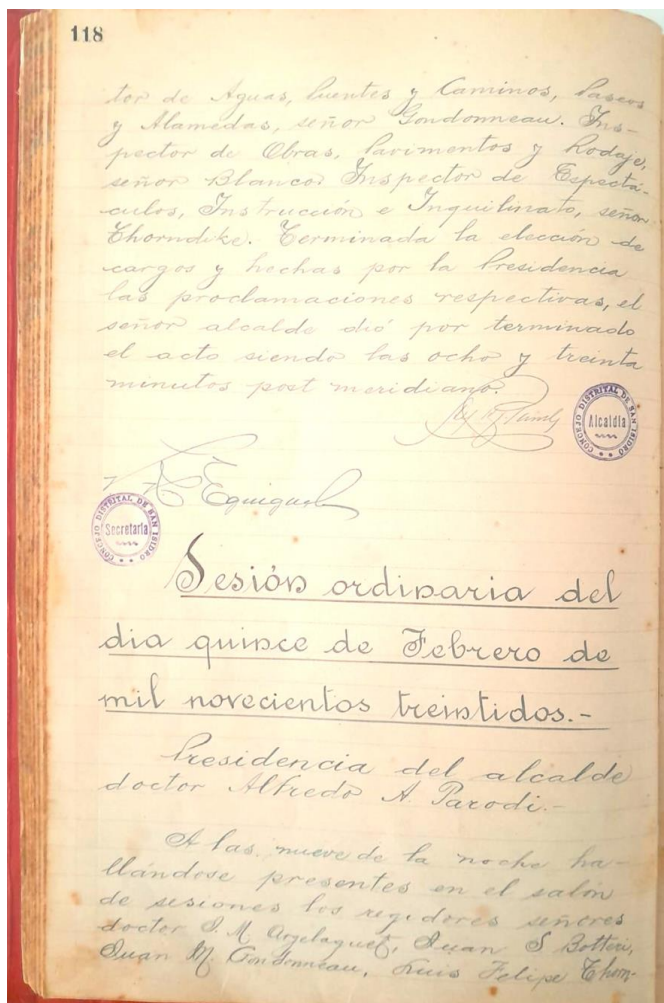 118
tor de Aguas, Puentes y Caminos, Paseos
y Alamedas, señor Gondonneau. Ins-
pector de Obras, Pavimentos y Rodaje,
señor Blanco. Inspector de Espectá-
culos, Instrucción e Inquilinato, señor
Thorndike. Terminada la elección de
cargos y hechas por la Presidencia
las proclamaciones respectivas, el
señor alcalde dió por terminado
el acto siendo las ocho y treinta
minutos post meridiano.
CONCEJO DISTRITAL DE SAN ISIDRO
Alcaldía
CONCEJO DISTRITAL DE SAN ISIDRO
Secretaría
Sesión ordinaria del
dia quince de Febrero de
mil novecientos treintidos.-
Presidencia del alcalde
doctor Alfredo A. Parodi.-
A las nueve de la noche ha-
llándose presentes en el salón
de sesiones los regidores señores
doctor J. M. Argelaguet, Juan S Botteri,
Juan M. Gondonneau, Luis Felipe Thorn-